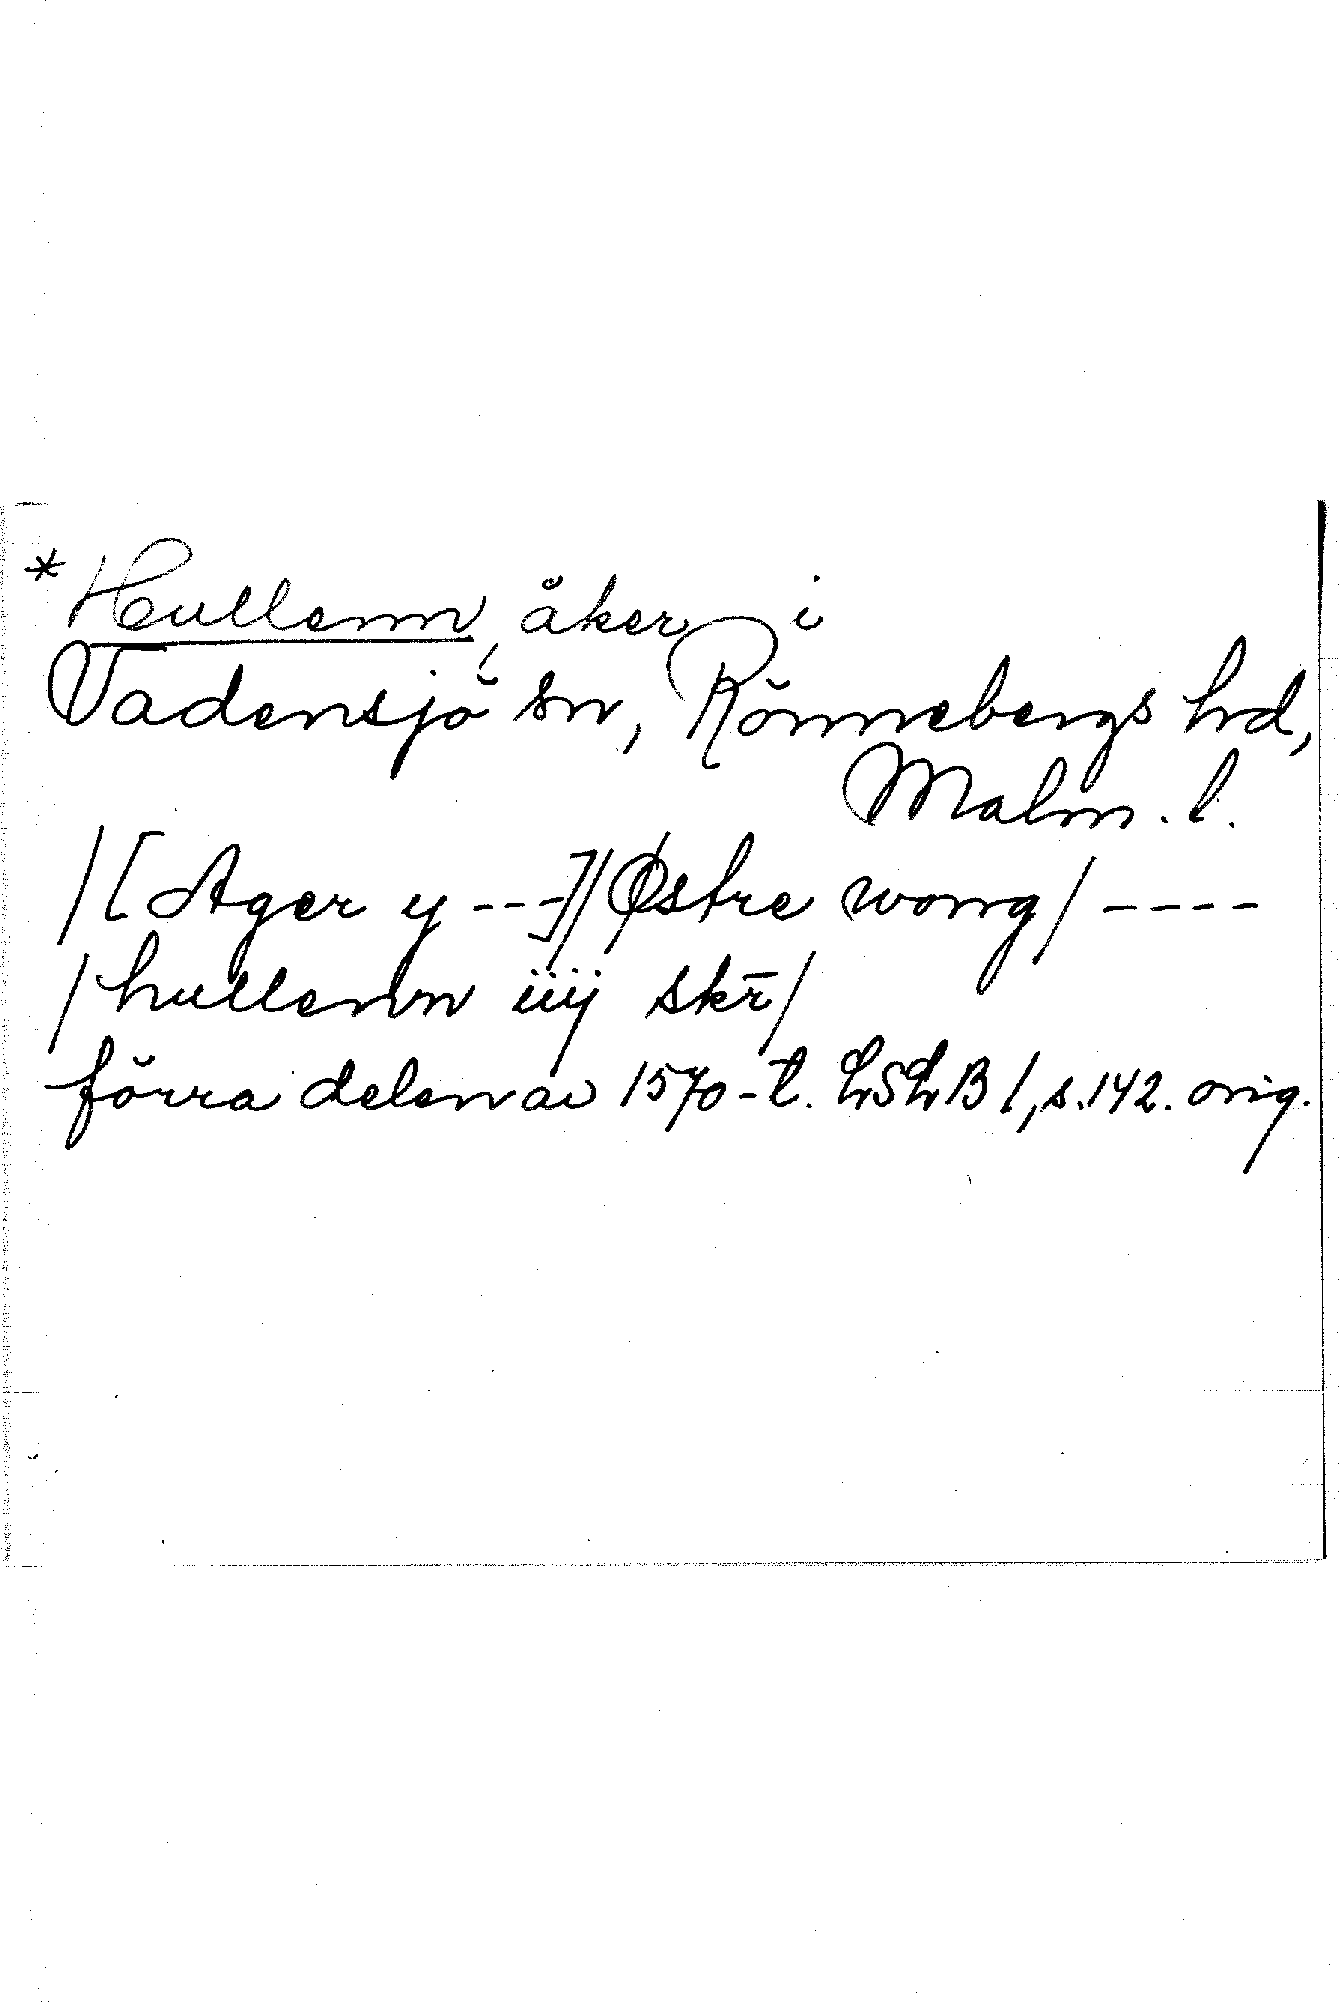 *Hullenn, åker i
Vadensjö sn, Rönnebergs hrd,
Malm. l.
/[Ager y ---]/Østre wong/ ----
/hullenn iiij skr̄/
förra delen av 1570-t. LSLB 1, s. 142. orig.